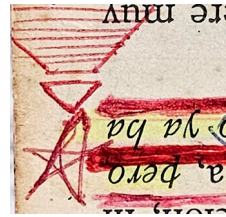 a, pero
ya ba
ere muy